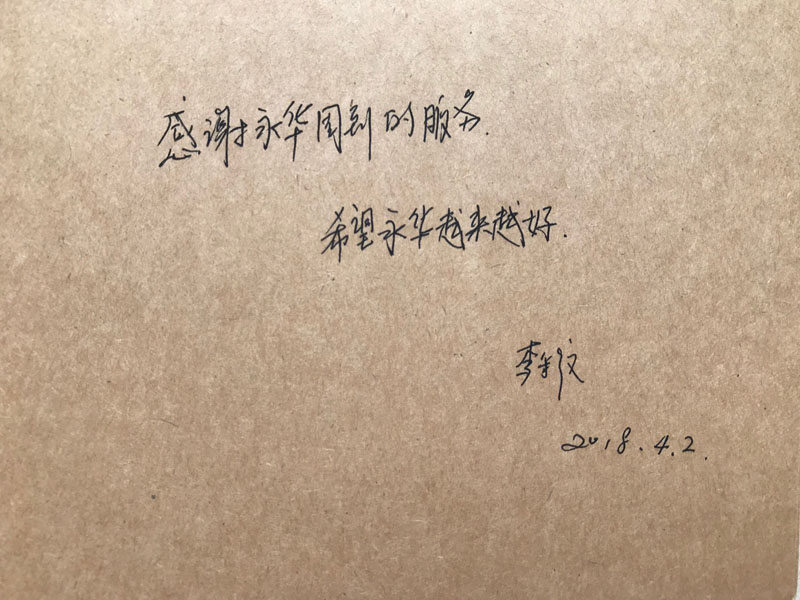 感谢永华周到的服务.
希望永华越来越好.
李
2018.4.2.